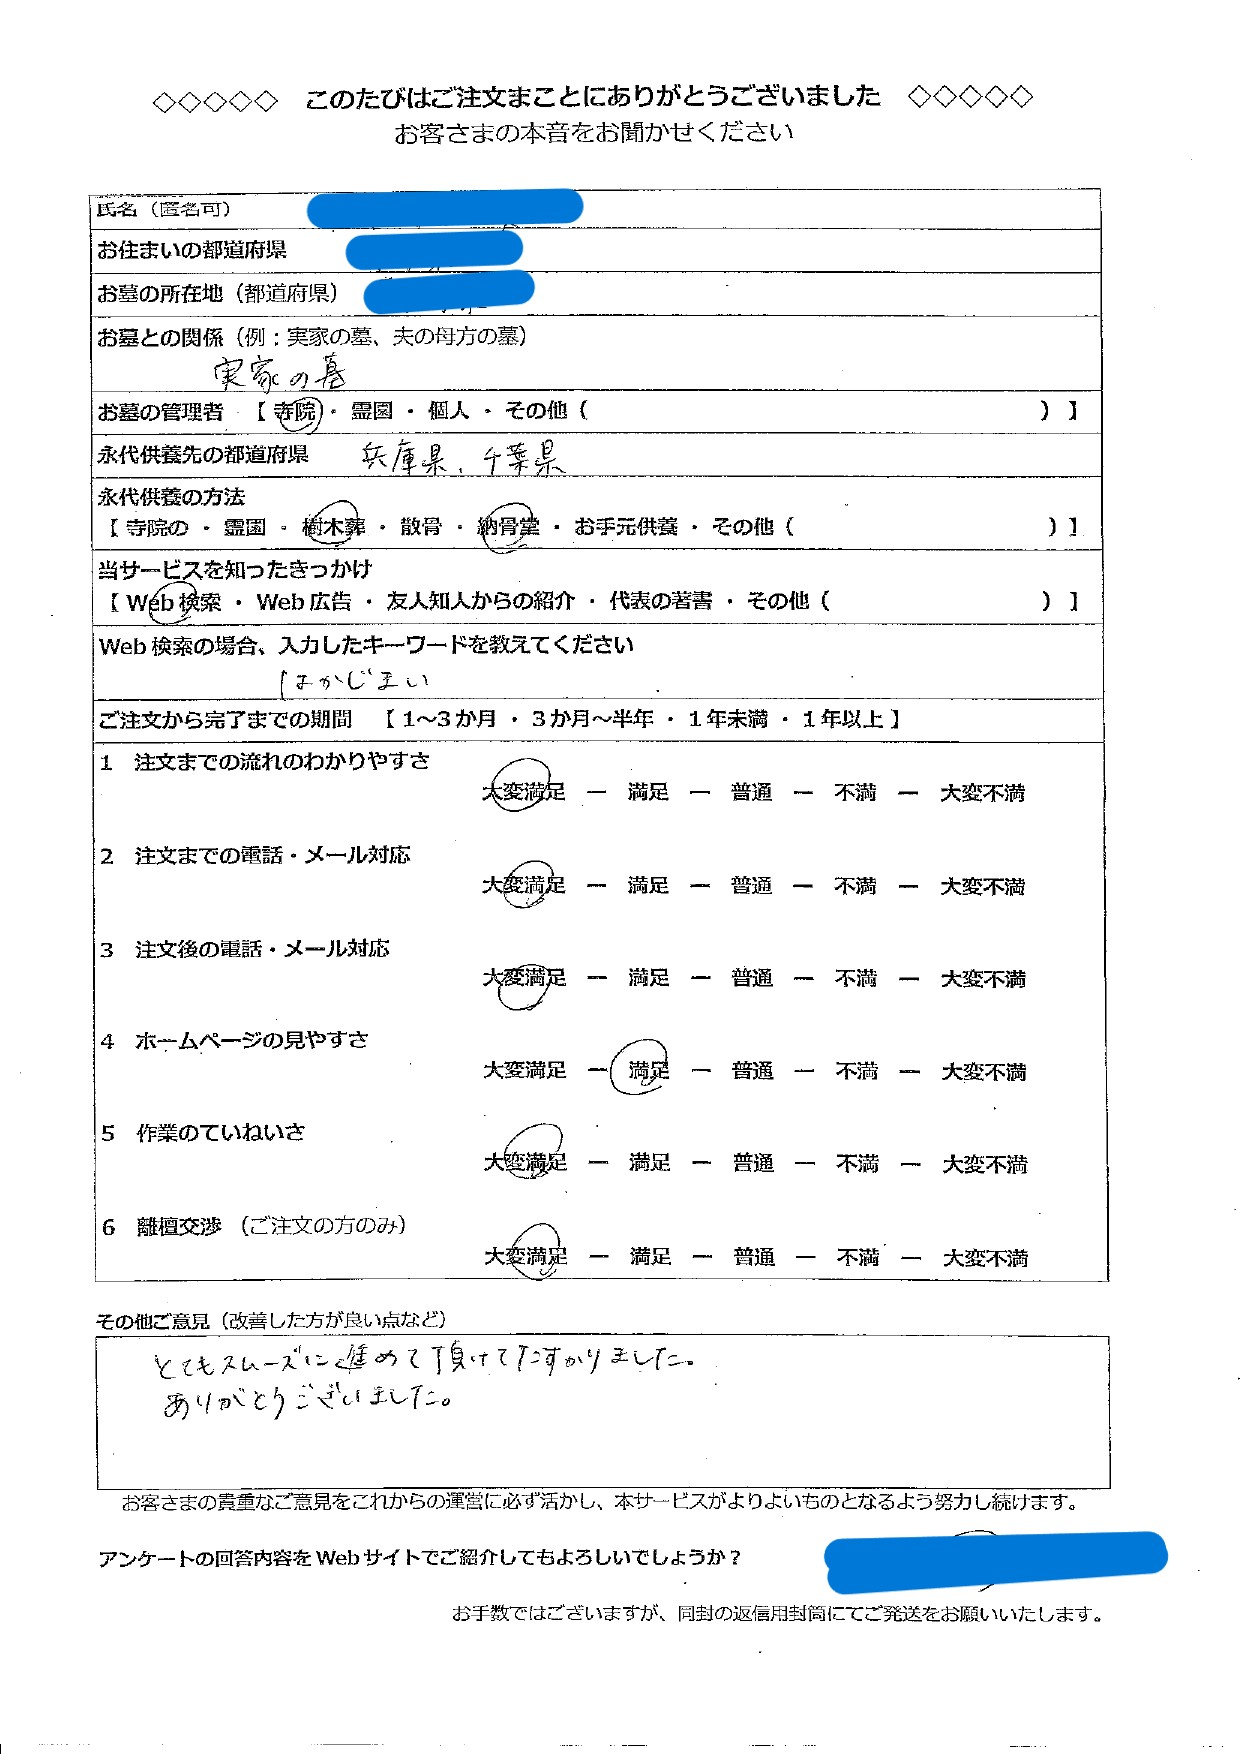 ◇◇◇◇◇ このたびはご注文まことにありがとうございました ◇◇◇◇◇
お客さまの本音をお聞かせください
氏名（匿名可）
お住まいの都道府県
お墓の所在地（都道府県）
お墓との関係（例：実家の墓、夫の母方の墓）
実家の墓
お墓の管理者 【 寺院 ・ 霊園 ・ 個人 ・ その他（ ）】
永代供養先の都道府県 兵庫県、千葉県
永代供養の方法
【 寺院の ・ 霊園 ・ 樹木葬 ・ 散骨 ・ 納骨堂 ・ お手元供養 ・ その他（ ）】
当サービスを知ったきっかけ
【 Web検索 ・ Web広告 ・ 友人知人からの紹介 ・ 代表の著書 ・ その他（ ）】
Web検索の場合、入力したキーワードを教えてください
はかじまい
ご注文から完了までの期間 【 1～3か月 ・ 3か月～半年 ・ 1年未満 ・ 1年以上 】
1 注文までの流れのわかりやすさ
大変満足 － 満足 － 普通 － 不満 － 大変不満
2 注文までの電話・メール対応
大変満足 － 満足 － 普通 － 不満 － 大変不満
3 注文後の電話・メール対応
大変満足 － 満足 － 普通 － 不満 － 大変不満
4 ホームページの見やすさ
大変満足 － 満足 － 普通 － 不満 － 大変不満
5 作業のていねいさ
大変満足 － 満足 － 普通 － 不満 － 大変不満
6 離檀交渉 （ご注文の方のみ）
大変満足 － 満足 － 普通 － 不満 － 大変不満
その他ご意見（改善した方が良い点など）
とてもスムーズに進めて頂けてたすかりました。
ありがとうございました。
お客さまの貴重なご意見をこれからの運営に必ず活かし、本サービスがよりよいものとなるよう努力し続けます。
アンケートの回答内容をWebサイトでご紹介してもよろしいでしょうか？
お手数ではございますが、同封の返信用封筒にてご発送をお願いいたします。